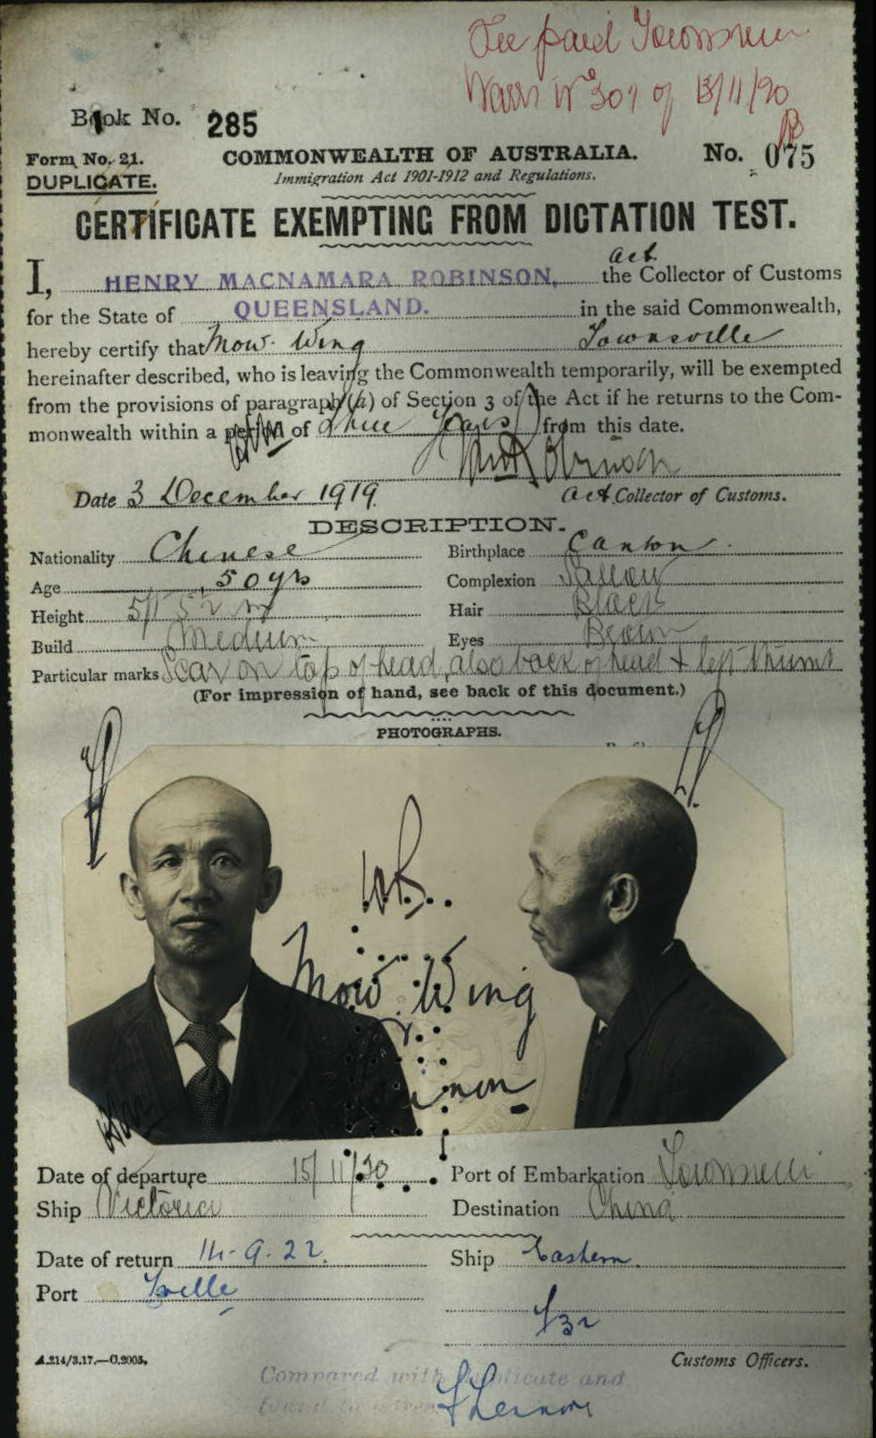 Fee paid Townsville
of 13/11/20
Book No. 285
Form No. 21.
COMMONWEALTH OF AUSTRALIA.
No. 075
DUPLICATE.
Immigration Act 1901-1912 and Regulations.
CERTIFICATE EXEMPTING FROM DICTATION TEST.
act.
I, HENRY MACNAMARA ROBINSON, the Collector of Customs
for the State of QUEENSLAND. in the said Commonwealth,
hereby certify that Mow Wing Townsville
hereinafter described, who is leaving the Commonwealth temporarily, will be exempted
from the provisions of paragraph (a) of Section 3 of the Act if he returns to the Com-
monwealth within a period of Three Years from this date.
Date 3 December 1919. Act Collector of Customs.
DESCRIPTION.
Nationality Chinese Birthplace Canton.
Age 50 yrs Complexion Sallow
Height 5ft Hair Black
Build Medium Eyes Brown
Particular marks Scar on top of head, also back of head & left thumb
(For impression of hand, see back of this document.)
PHOTOGRAPHS.
Mow Wing
Date of departure 15/11/20 Port of Embarkation Townsville
Ship Victoria Destination China
Date of return 14-9-22. Ship Eastern.
Port Tville
A.214/3.17.—C.2005. Customs Officers.
Compared with duplicate and